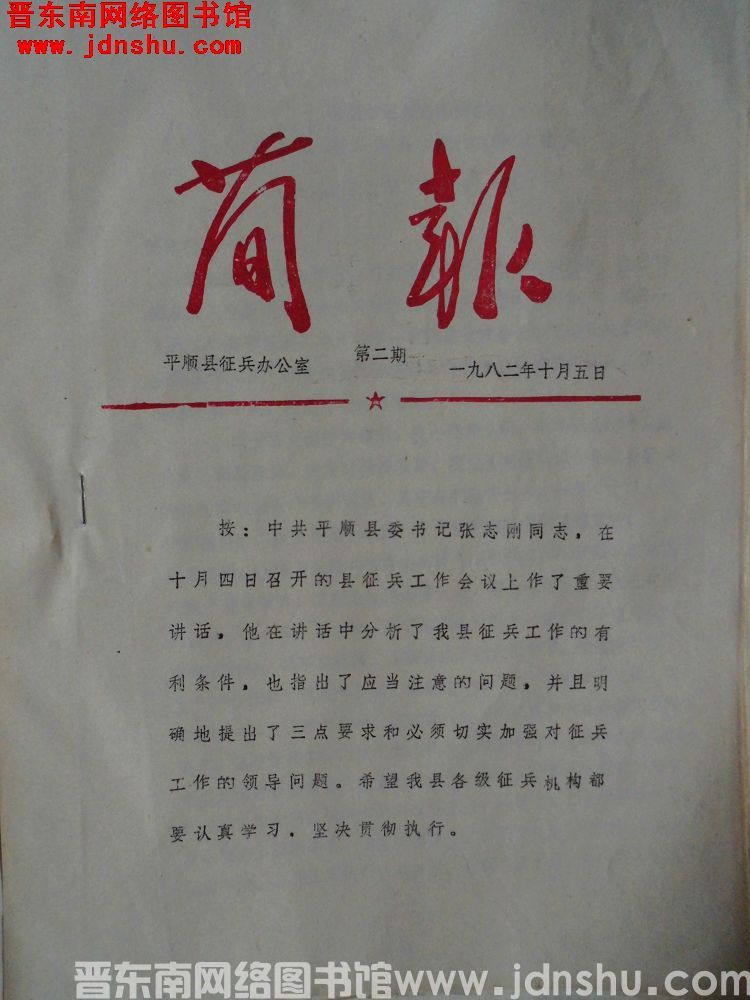 晋东南网络图书馆
www.jdnshu.com
简報
平顺县征兵办公室 第二期 一九八二年十月五日
按：中共平顺县委书记张志刚同志，在
十月四日召开的县征兵工作会议上作了重要
讲话，他在讲话中分析了我县征兵工作的有
利条件，也指出了应当注意的问题，并且明
确地提出了三点要求和必须切实加强对征兵
工作的领导问题。希望我县各级征兵机构都
要认真学习，坚决贯彻执行。
晋东南网络图书馆www.jdnshu.com